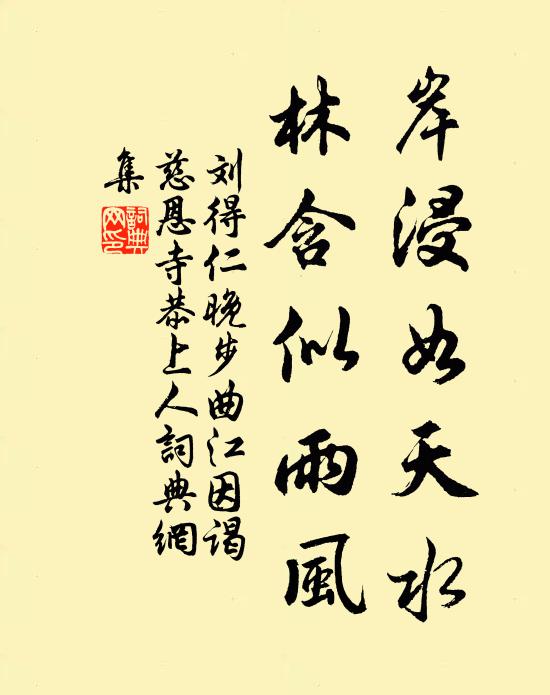 岸浸如天水
林含似雨風
刘得仁晚步曲江因谒
慈恩寺恭上人詞典網
集
詞典网印